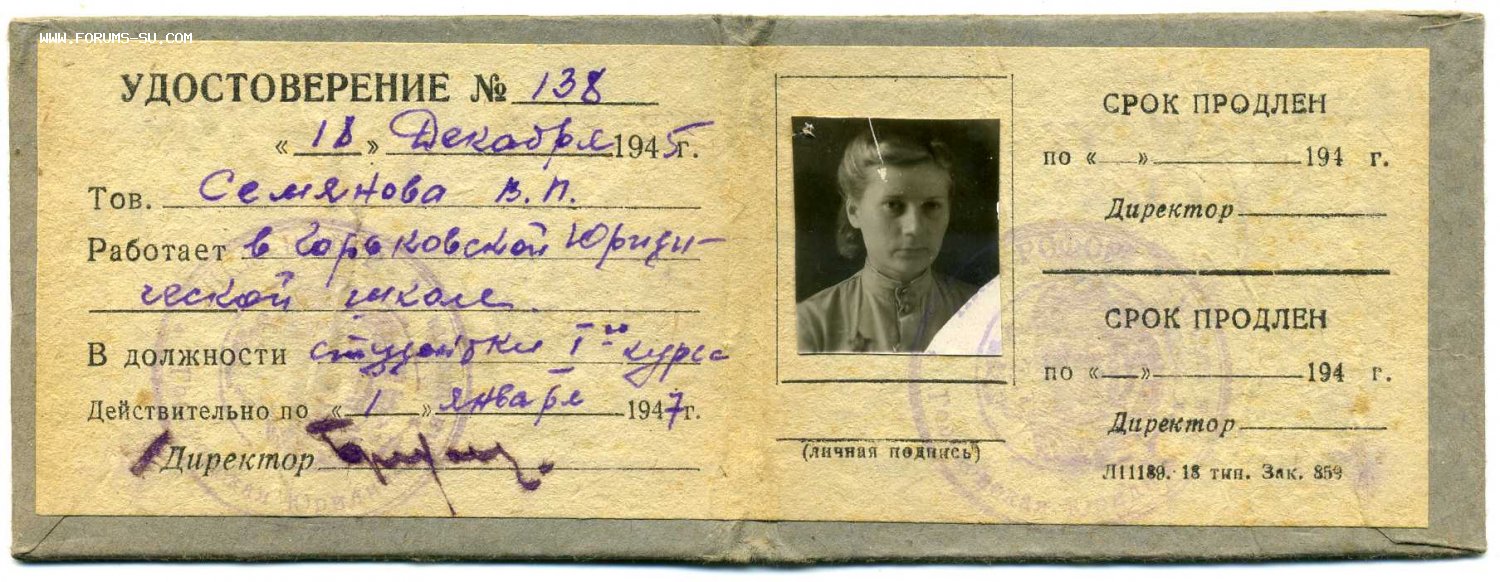 WWW.FORUMS-SU.COM
УДОСТОВЕРЕНИЕ № 138
« 18 » Декабря 1945 г.
Тов. Семянова В. П.
Работает в Горьковской Юриди-
ческой школе
В должности студентки I-го курса
Действительно по « 1 » января 1947 г.
Директор
(личная подпись)
СРОК ПРОДЛЕН
по « » 194 г.
Директор
СРОК ПРОДЛЕН
по « » 194 г.
Директор
Л11189. 18 тип. Зак. 859